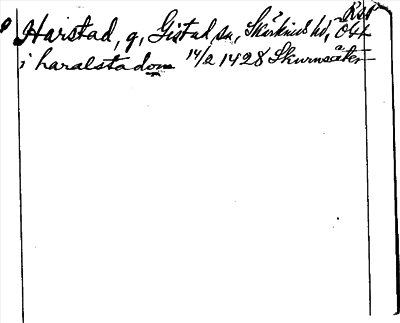 Harstad, g, Gistad sn, Skärkinds hd, Ögl
i haralstadom 14/2 1428 Skurnsäter